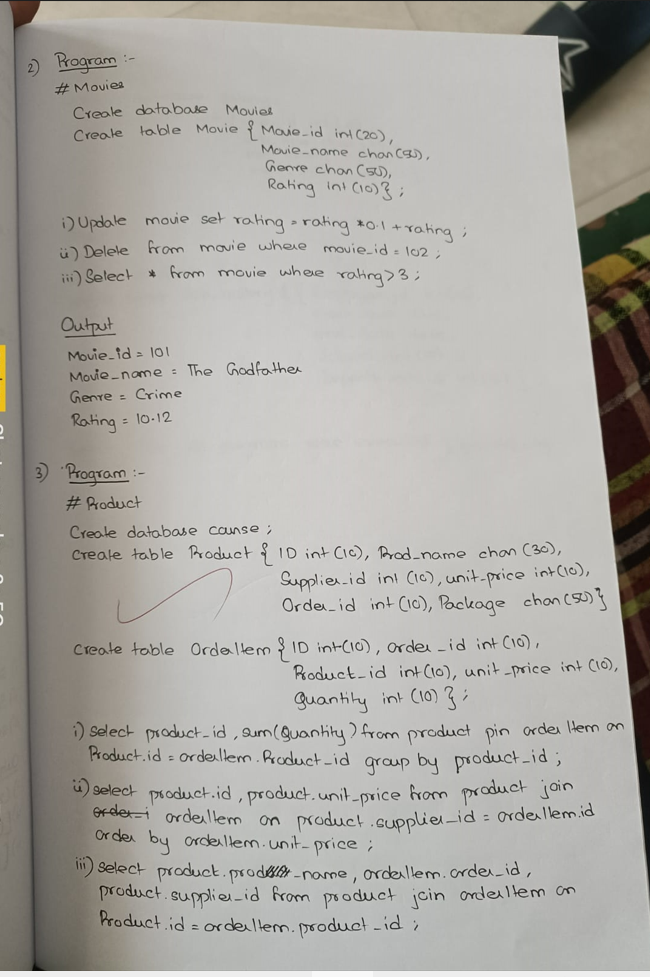 2) Program :-
# Movies
Create database Movies
Create table Movie { Movie_id int(20),
Movie_name char(50),
Genre char(50),
Rating int(10)};
i) Update movie set rating = rating *0.1 + rating ;
ii) Delete from movie where movie_id = 102 ;
iii) Select * from movie where rating > 3 ;
Output
Movie_id = 101
Movie_name = The Godfather
Genre = Crime
Rating = 10.12
3) Program :-
# Product
Create database ;
Create table Product { ID int(10), Prod_name char (30),
Supplier_id int (10), unit_price int(10),
Order_id int (10), Package char(50)}
Create table OrderItem { ID int(10), order_id int(10),
Product_id int(10), unit_price int (10),
Quantity int (10) };
i) select product_id, sum(Quantity) from product pin order Item on
Product.id = orderItem.Product_id group by product_id ;
ii) select product.id, product.unit_price from product join
orderItem on product.supplier_id = orderItem.id
order by orderItem.unit_price ;
iii) select product.prod_name, orderItem.order_id,
product.supplier_id from product join orderItem on
Product.id = orderItem.product_id ;